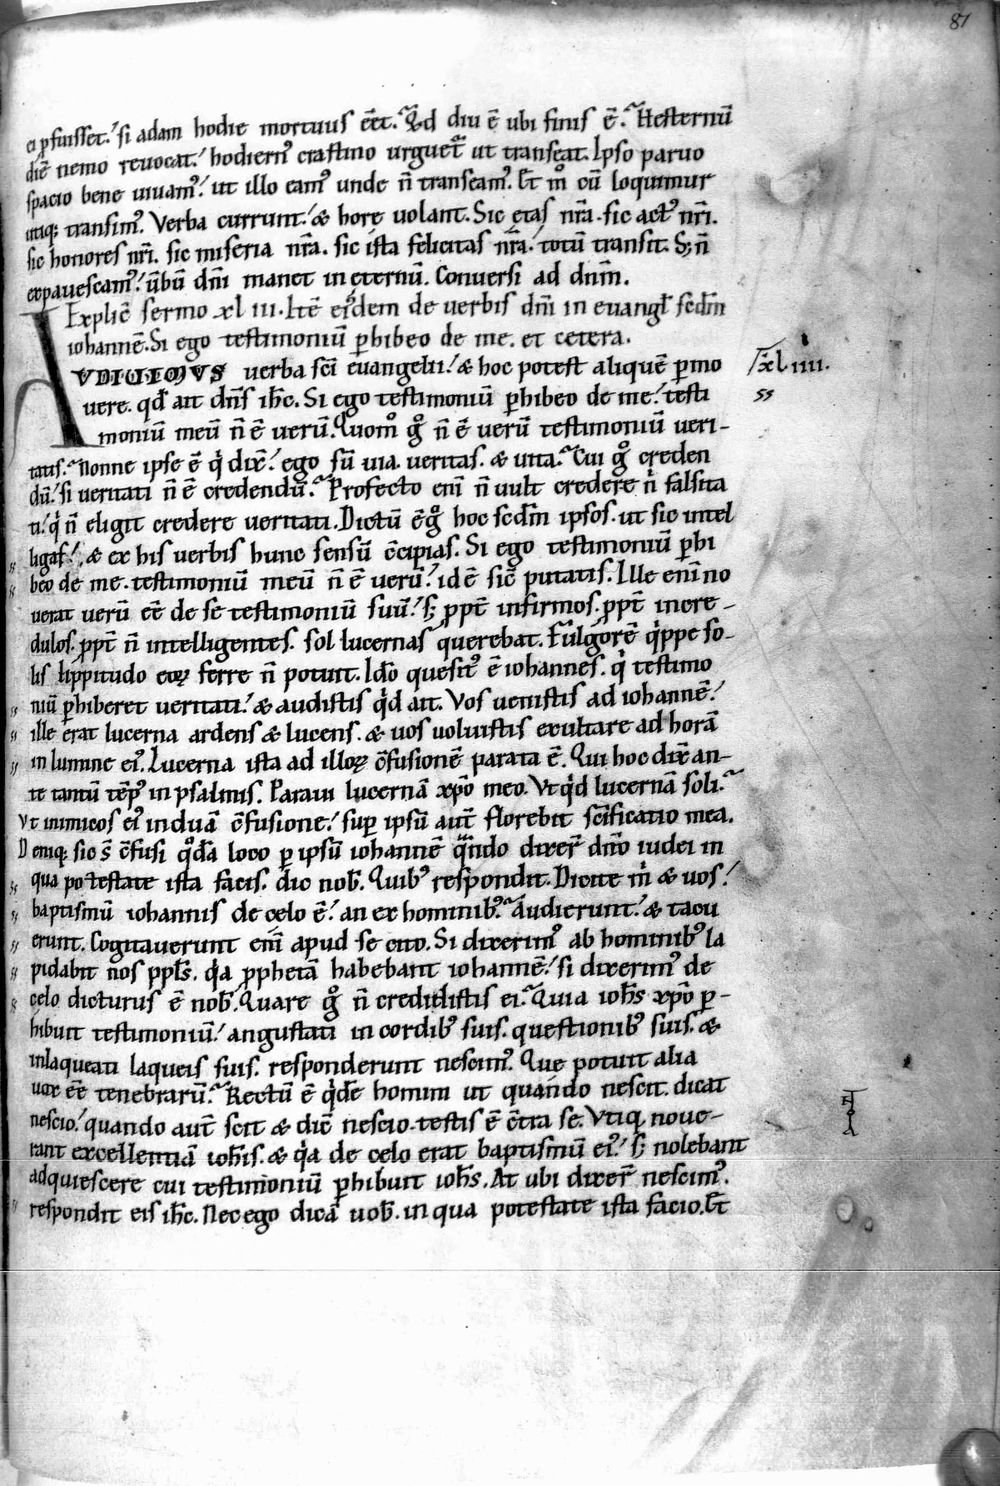 87
ei ꝓfuisset.' si adam hodie mortuus eēt. Qd̄ diu ē ubi finis ē. Hesternū
diē nemo reuocat.' hodiern᷒ crastino urguet᷒ ut transeat. Ipso paruo
spacio bene uiuam᷒.' ut illo eam᷒ unde n̄ transeam᷒. Et mͦ cū loquimur
utiq; transim᷒. Verba currunt.' & hore uolant. Sic ętas nr̄a. sic act᷒ nr̄i.
sic honores nr̄i. sic miseria nr̄a. sic ista felicitas nr̄a.' totū transit. S; n̄
expauescam᷒.' ūbū dn̄i manet in ęternū. Conuersi ad dnm̄.
Explic̄ sermo xl iii. Itē ei᷒dem de uerbis dn̄i in euangł scdm̄
iohannē. Si ego testimoniū ꝑhibeo de me. et cetera.
AVDIVIMVS uerba sc̄i euangelii.' & hoc potest aliquē ꝑmo
xl iiii.
uere. qd̄ ait dn̄s ih̄c. Si ego testimoniū ꝑhibeo de me.' testi
moniū meū n̄ ē uerū. Quomͦ gͦ n̄ ē uerū testimoniū ueri-
tatis. Nonne ipse ē q' dix̄.' ego sū uia. ueritas. & uita. Cui gͦ creden
dū.' si ueritati n̄ ē credendū. Profecto eni n̄ uult credere n' falsita
ti.' q' n̄ eligit credere ueritati. Dictū ē gͦ hoc scdm̄ ipsos. ut sic intel
ligas.' & ex his uerbis hunc sensū c̄cipias. Si ego testimoniū ꝑhi
beo de me. testimoniū meū n̄ ē uerū.' id ē sic̄ putatis. Ille eni no
uerat uerū eē de se testimoniū suū.' s; ꝓpt̄ infirmos. ꝓpt̄ incre-
dulos. ꝓpt̄ n̄ intelligentes. sol lucernas querebat. Fulgorē q'ppe so-
lis lippitudo eoꝝ ferre n̄ potuit. Ido̅ quesit᷒ ē iohannes. q' testimo
niū ꝑhiberet ueritati.' & audistis q'd ait. Vos uenistis ad iohannē.'
ille erat lucerna ardens & lucens. & uos uoluistis exultare ad horā
in lumine ei᷒. Lucerna ista ad illoꝝ c̄fusionē parata ē. Qui hoc dix̄ an-
te tantū tēp᷒ in psalmis. Paraui lucernā xp̄o meo. Vt q'd lucernā soli.
Vt inimicos ei᷒ induā c̄fusione.' suꝑ ipsū aut̄ florebit sc̄ificatio mea.
Deniq; sic s̄ c̄fusi qͦdā loco ꝑ ipsū iohannē qᵃndo dixer̄ dn̄o iudei in
qua potestate ista facis. dic nob̄. Quib᷒ respondit. Dicite m' & uos.'
baptismū iohannis de celo ē.' an ex hominib᷒. Audierunt.' & tacu
erunt. Cogitauerunt eni apud se cito. Si dixerim᷒ ab hominib᷒ la
pidabit nos ppłs. q'a ꝓphetā habebant iohannē.' si dixerim᷒ de
celo dicturus ē nob̄. Quare gͦ n̄ credidistis ei. Quia ioh̄s xp̄o ꝑ-
hibuit testimoniū.' angustati in cordib᷒ suis. questionib᷒ suis. &
inlaqueati laqueis suis. responderunt nescim᷒. Que potuit alia
uox eē tenebrarū. Rectū ē q'dē homini ut quando nescit. dicat
nescio.' quando aut̄ scit & dic̄ nescio. testis ē c̄tra se. Vtiq. noue-
rant excellentiā ioh̄is. & q'a de celo erat baptismū ei᷒.' s; nolebant
adquiescere cui testimoniū ꝑhibuit ioh̄s. At ubi dixer̄ nescim᷒.
respondit eis ih̄c. Nec ego dicā uob̄. in qua potestate ista facio. Et